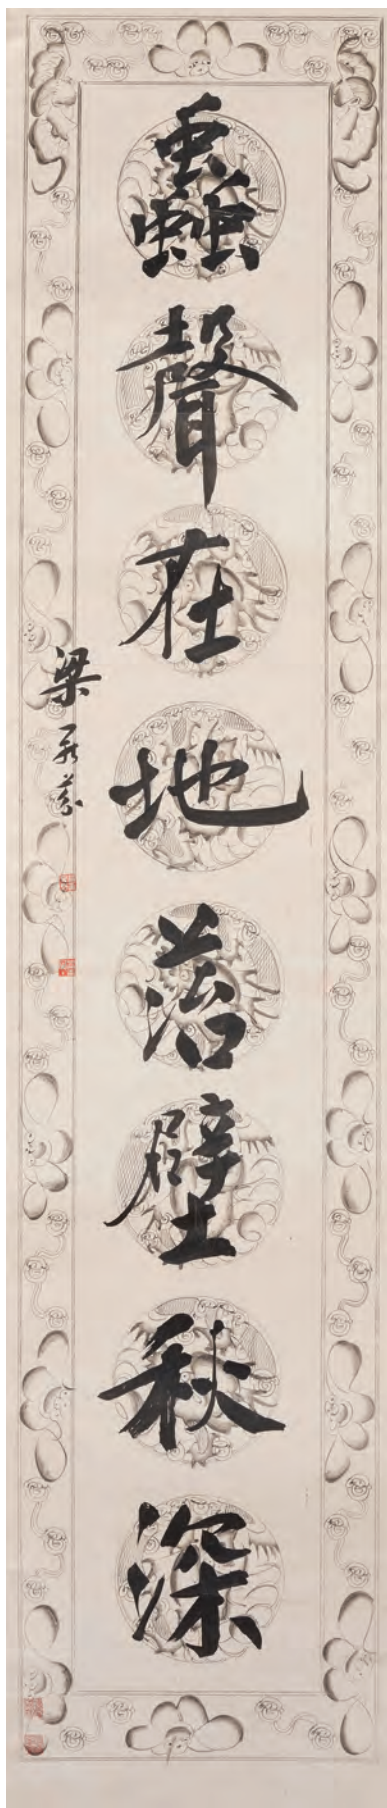 蟲聲在地菭壁秋深
梁鼎芬